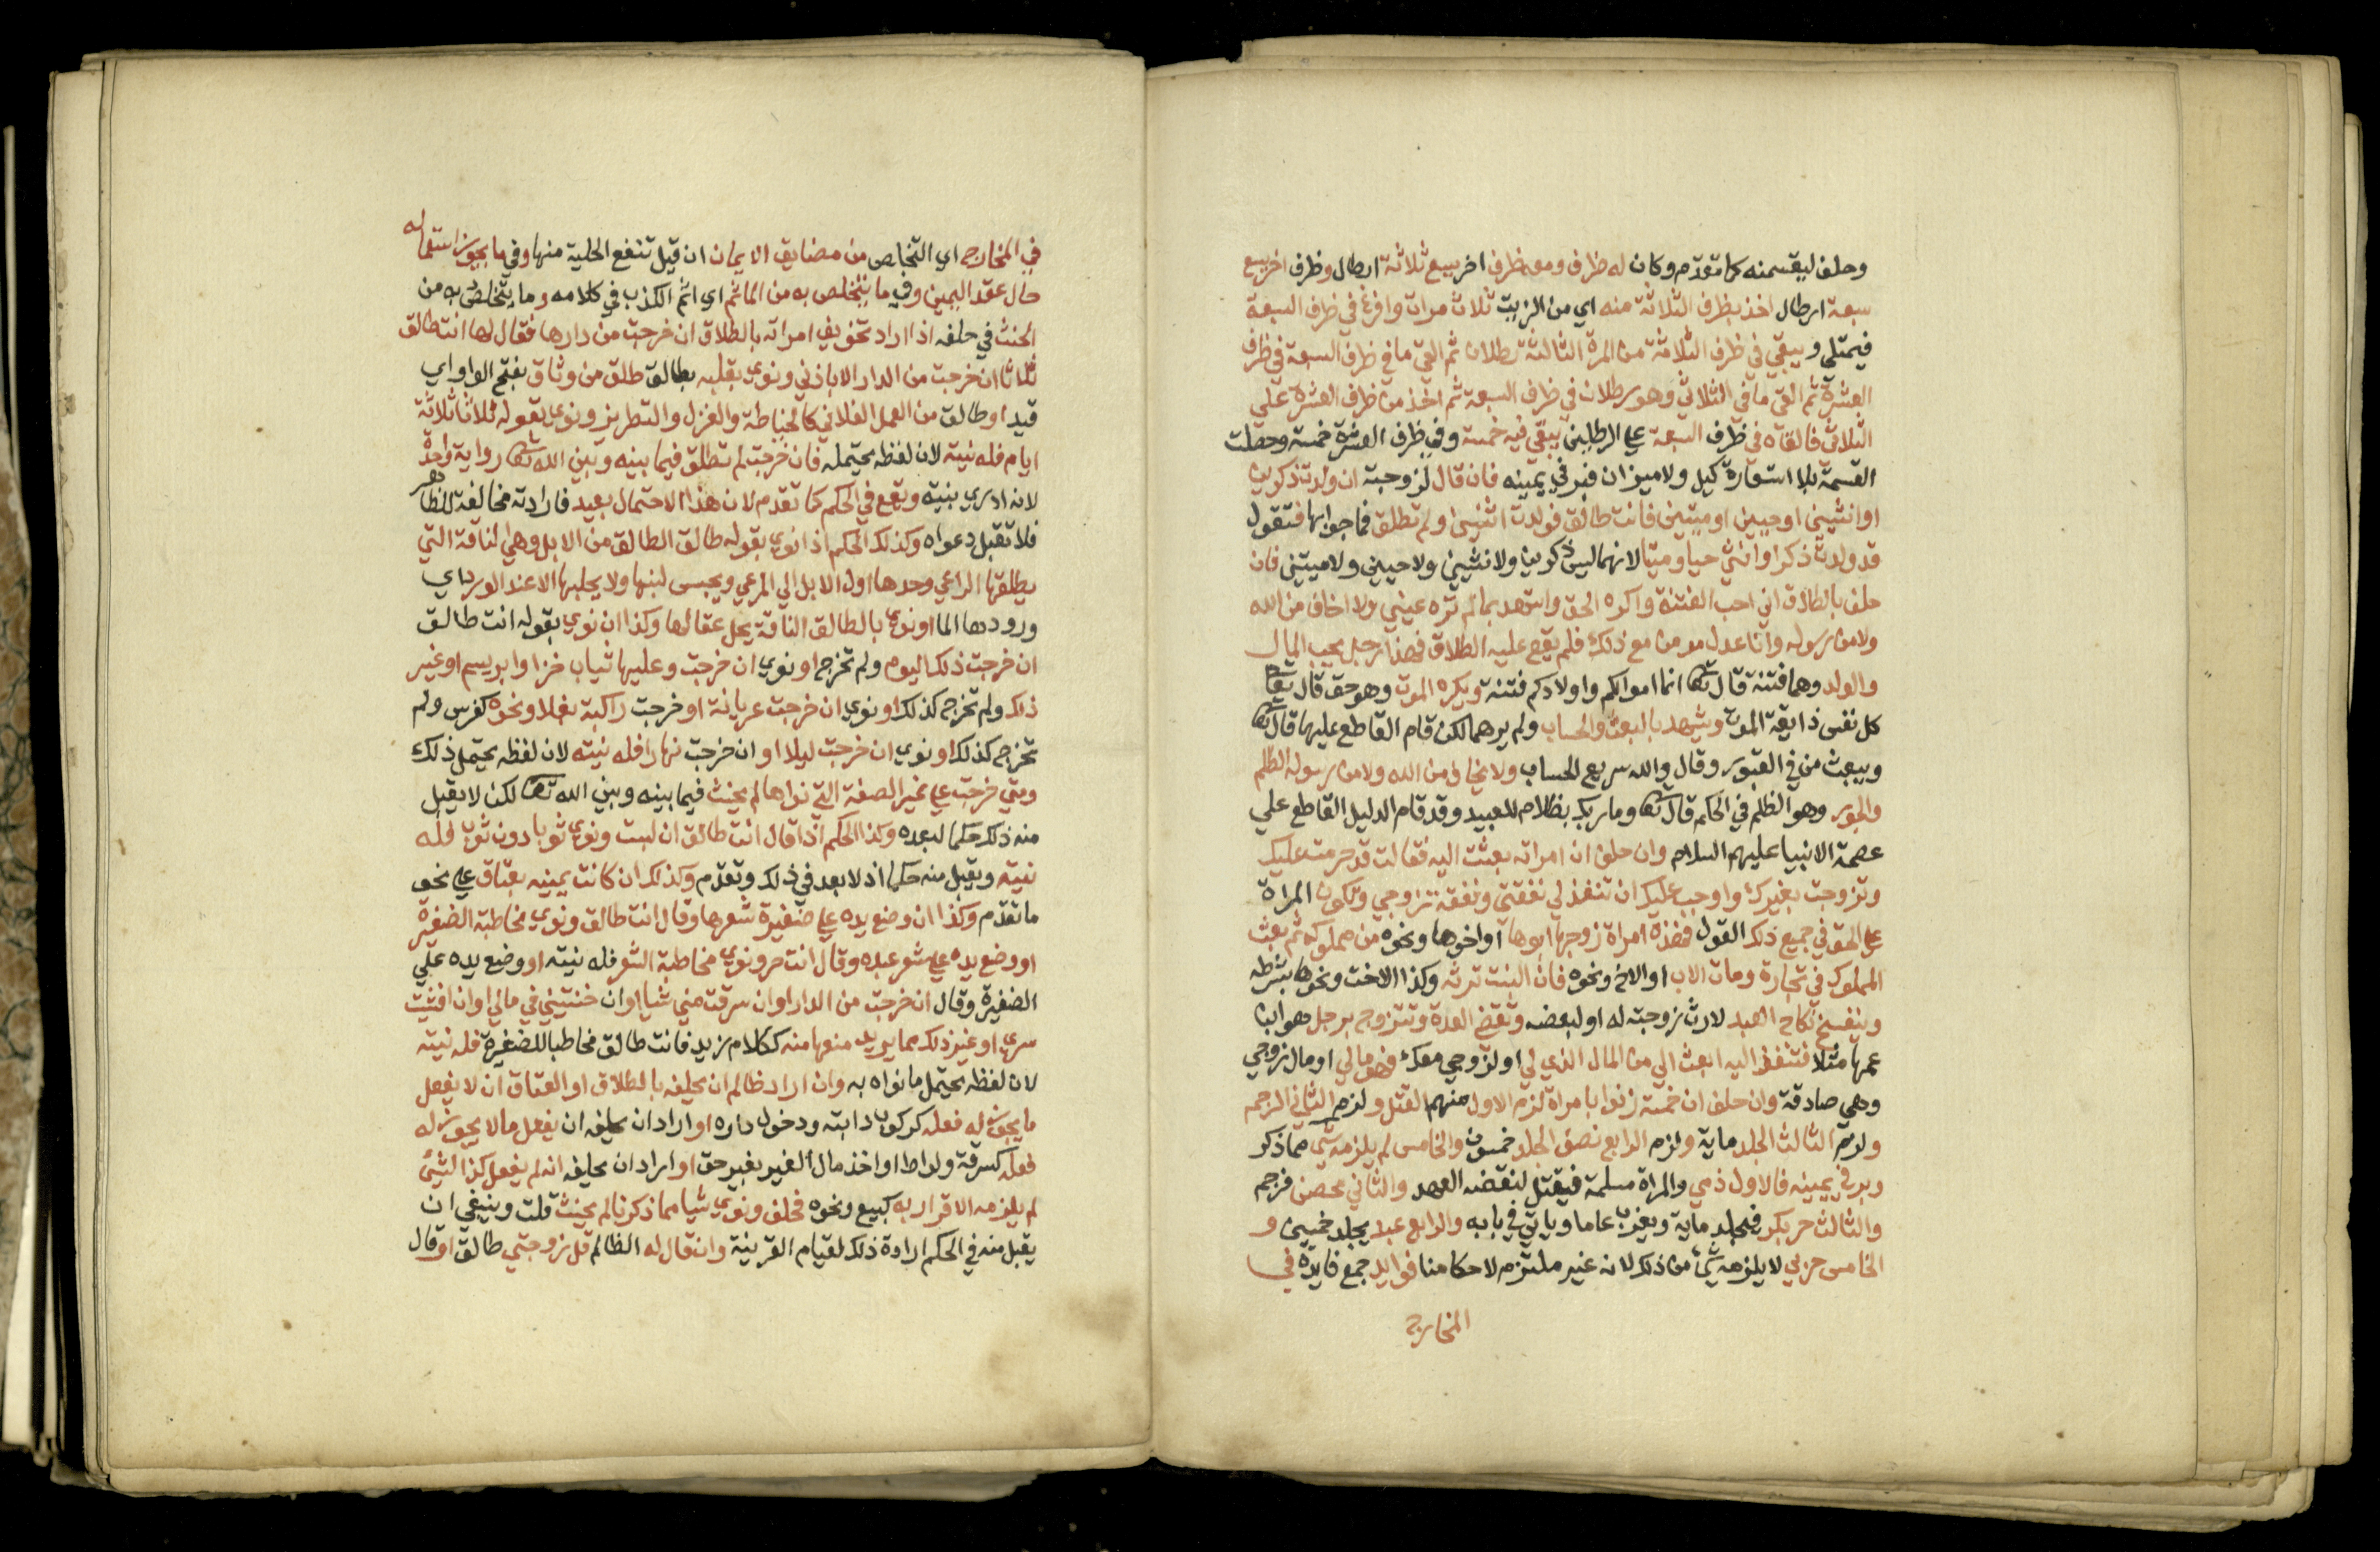 وحلف ليقسمنه كما تقدم وكان له ظرف ومعه ظرف اخر يسع ثلاثة ارطال وظرف اخر يسع
سبعة ارطال اخذ بظرف الثلاثة منه اي من الزيت ثلاث مرات وافرغ في ظرف السبعة
فيمتلي ويبقي في ظرف الثلاثة من المرة الثالثة رطلان ثم القي ما في ظرف السبعة في ظرف
العشرة ثم القي ما في الثلاثي وهو رطلان في ظرف السبعة ثم اخذ من ظرف العشرة علي
الثلاثي فالقاه في ظرف السبعة علي الرطلين يبقي فيه خمسة وفي ظرف العشرة خمسة وحصلت
القسمة بلا استعارة كيل ولا ميزان فبر في يمينه فان قال لزوجته ان ولدت ذكرين
او انثيين او حيين او ميتين فانت طالق فولدت اثنين ولم تطلق فما جوابها فتقول
قد ولدت ذكرا وانثي حيا وميتا لانهما ليس ذكرين ولا انثيين ولا حيين ولا ميتين فان
حلف بالطلاق اني احب الفتنة واكره الحق واشهد بما لم تره عيني ولا اخاف من الله
ولا من رسوله وانا عدل مومن مع ذلك فلم يقع عليه الطلاق فهذا رجل يحب المال
والولد وهما فتنة قال تعالى انما اموالكم واولادكم فتنة ويكره الموت وهو حق قال تعالى
كل نفس ذايقة الموت ويشهد بالبعث والحساب ولم يرهما لكن قام القاطع عليها قال تعالى
ويبعث من في القبور وقال والله سريع الحساب ولا يخاف من الله ولا من رسوله الظلم
والجور وهو الظلم في الحكم قال تعالى وما ربك بظلام للعبيد وقد قام الدليل القاطع علي
عصمة الانبيا عليهم السلام وان حلف ان امراته بعثت اليه فقالت قد حرمت عليك
وتزوجت بغيرك واوجب عليك ان تنفذ لي نفقتي ونفقة زوجي وتكون المراة
علي الحق في جميع ذلك القول فهذه امراة زوجها ابوها او اخوها ونحوه من مملوكه ثم بعث
المملوك في تجارة ومات الاب او الاخ ونحوه فان البنت ترثه وكذا الاخت ونحوها بشرطه
وينفسخ نكاح العبد لارث زوجته له او لبعضه وتقضي العدة وتتزوج برجل هو ابن
عمها مثلا فتنفذ اليه ابعث الي من المال الذي لي او لزوجي معك فهو مالي او مال زوجي
وهي صادقة وان حلف ان خمسة زنوا بامراة لزم الاول منهم القتل ولزم الثاني الرجم
ولزم الثالث الجلد ماية ولزم الرابع نصف الجلد خمسون والخامس لم يلزمه شي مما ذكر
وبر في يمينه فالاول ذمي والمراة مسلمة فيقتل لنقضه العهد والثاني محصن فرجم
والثالث حر بكر فيجلد ماية ويغرب عاما وياتي في بابه والرابع عبد يجلد خمسين و
الخامس حربي لا يلزمه شي من ذلك لانه غير ملتزم لاحكامنا فوايد جمع فايدة في
المخارج
في المخارج اي التخلص من مضايق الايمان ان قيل تنفع الحلية منها وفي ما يجوز استعماله
حال عقد اليمين وفي ما يتخلص به من الماثم اي اثم الكذب في كلامه وما يتخلص به من
الحنث في حلفه اذا اراد تخويف امراته بالطلاق ان خرجت من دارها فقال لها انت طالق
ثلاثا ان خرجت من الدار الا باذني ونوي بقلبه بطالق طلق من وثاق بفتح الواو اي
قيد او طالق من العمل الفلاني كالخياطة والغزل والتطريز ونوي بقوله ثلاثا ثلاثة
ايام فله نيته لان لفظه يحتمله فان خرجت لم تطلق فيما بينه وبين الله تعالى رواية واحدة
لانه ادري بنيته ويقع في الحكم كما تقدم لان هذا الاحتمال بعيد فارادته مخالفة للظاهر
فلا تقبل دعواه وكذلك الحكم اذا نوي بقوله طالق الطالق من الابل وهي الناقة التي
يطلقها الراعي وحدها اول الابل الي المرعي ويحبس لبنها ولا يحلبها الا عند الورد اي
ورودها الما او نوي بالطالق الناقة يحل عقالها وكذا ان نوي بقوله انت طالق
ان خرجت ذلك اليوم ولم تخرج او نوي ان خرجت وعليها ثياب خز او ابريسم او غير
ذلك ولم تخرج كذلك او نوي ان خرجت عريانة او خرجت راكبة بغلا ونحوه كفرس ولم
تخرج كذلك او نوي ان خرجت ليلا او ان خرجت نهارا فله نيته لان لفظه يحتمل ذلك
ومتي خرجت علي غير الصفة التي نواها لم يحنث فيما بينه وبين الله تعالى لكن لا يقبل
منه ذلك حكما لبعده وكذا الحكم اذا قال انت طالق ان لبست ونوي ثوبا دون ثوب فله
نيته ويقبل منه حكما اذ لا بعد في ذلك وتقدم وكذلك ان كانت يمينه بعتاق علي نحو
ما تقدم وكذا ان وضع يده علي ضفيرة شعرها وقال انت طالق ونوي مخاطبة الضفيرة
او وضع يده علي شعر عبده وقال انت حر ونوي مخاطبة الشعر فله نيته او وضع يده علي
الضفيرة وقال ان خرجت من الدار او ان سرقت مني شيا او ان خنتيني في مالي او ان افشيت
سري او غير ذلك مما يريد منعها منه ككلام زيد فانت طالق مخاطبا للضفيرة فله نيته
لان لفظه يحتمل ما نواه به وان اراد ظالم ان يحلفه بالطلاق او العتاق ان لا يفعل
ما يجوز له فعله كركوب دابته ودخول داره او اراد ان يحلفه ان يفعل ما لا يجوز له
فعله كسرقة ولواط او اخذ مال الغير بغير حق او اراد ان يحلفه انه لم يفعل كذا الشي
لم يلزمه الاقرار به كبيع ونحوه فحلف ونوي شيا مما ذكرنا لم يحنث قلت وينبغي ان
يقبل منه في الحكم ارادة ذلك لقيام القرينة وان قال له الظالم قل زوجتي طالق او قال